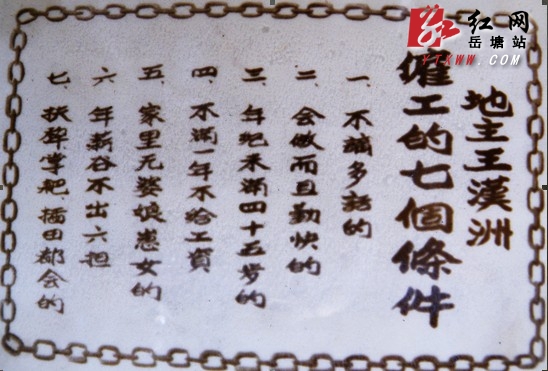 红网
岳塘站
YTXWW.COM
地主王漢洲
僱工的七個條件
一 不諵多話的
二 会做而且勤快的
三 年纪未满四十五岁的
四 不满一年不给工資
五 家里无婆娘崽女的
六 年薪谷不出六担
七 扶犂掌耙、插田都会的